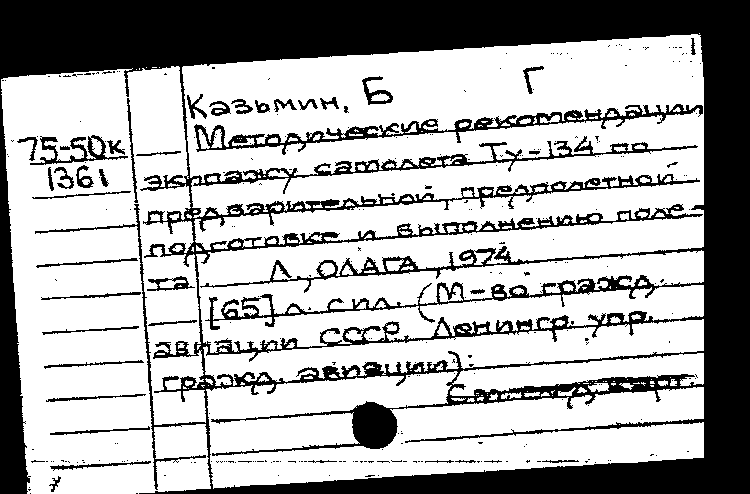 Казьмин, Б Г
75-50к
1361
Методические рекомендации
экипажу самолета Ту-134 по
предварительной, предполетной
подготовке и выполнению поле-
та. Л., ОЛАГА, 1974.
[65] л. с ил. (М-во гражд.
авиации СССР. Ленингр. упр.
гражд. авиации).
См. след. карт.